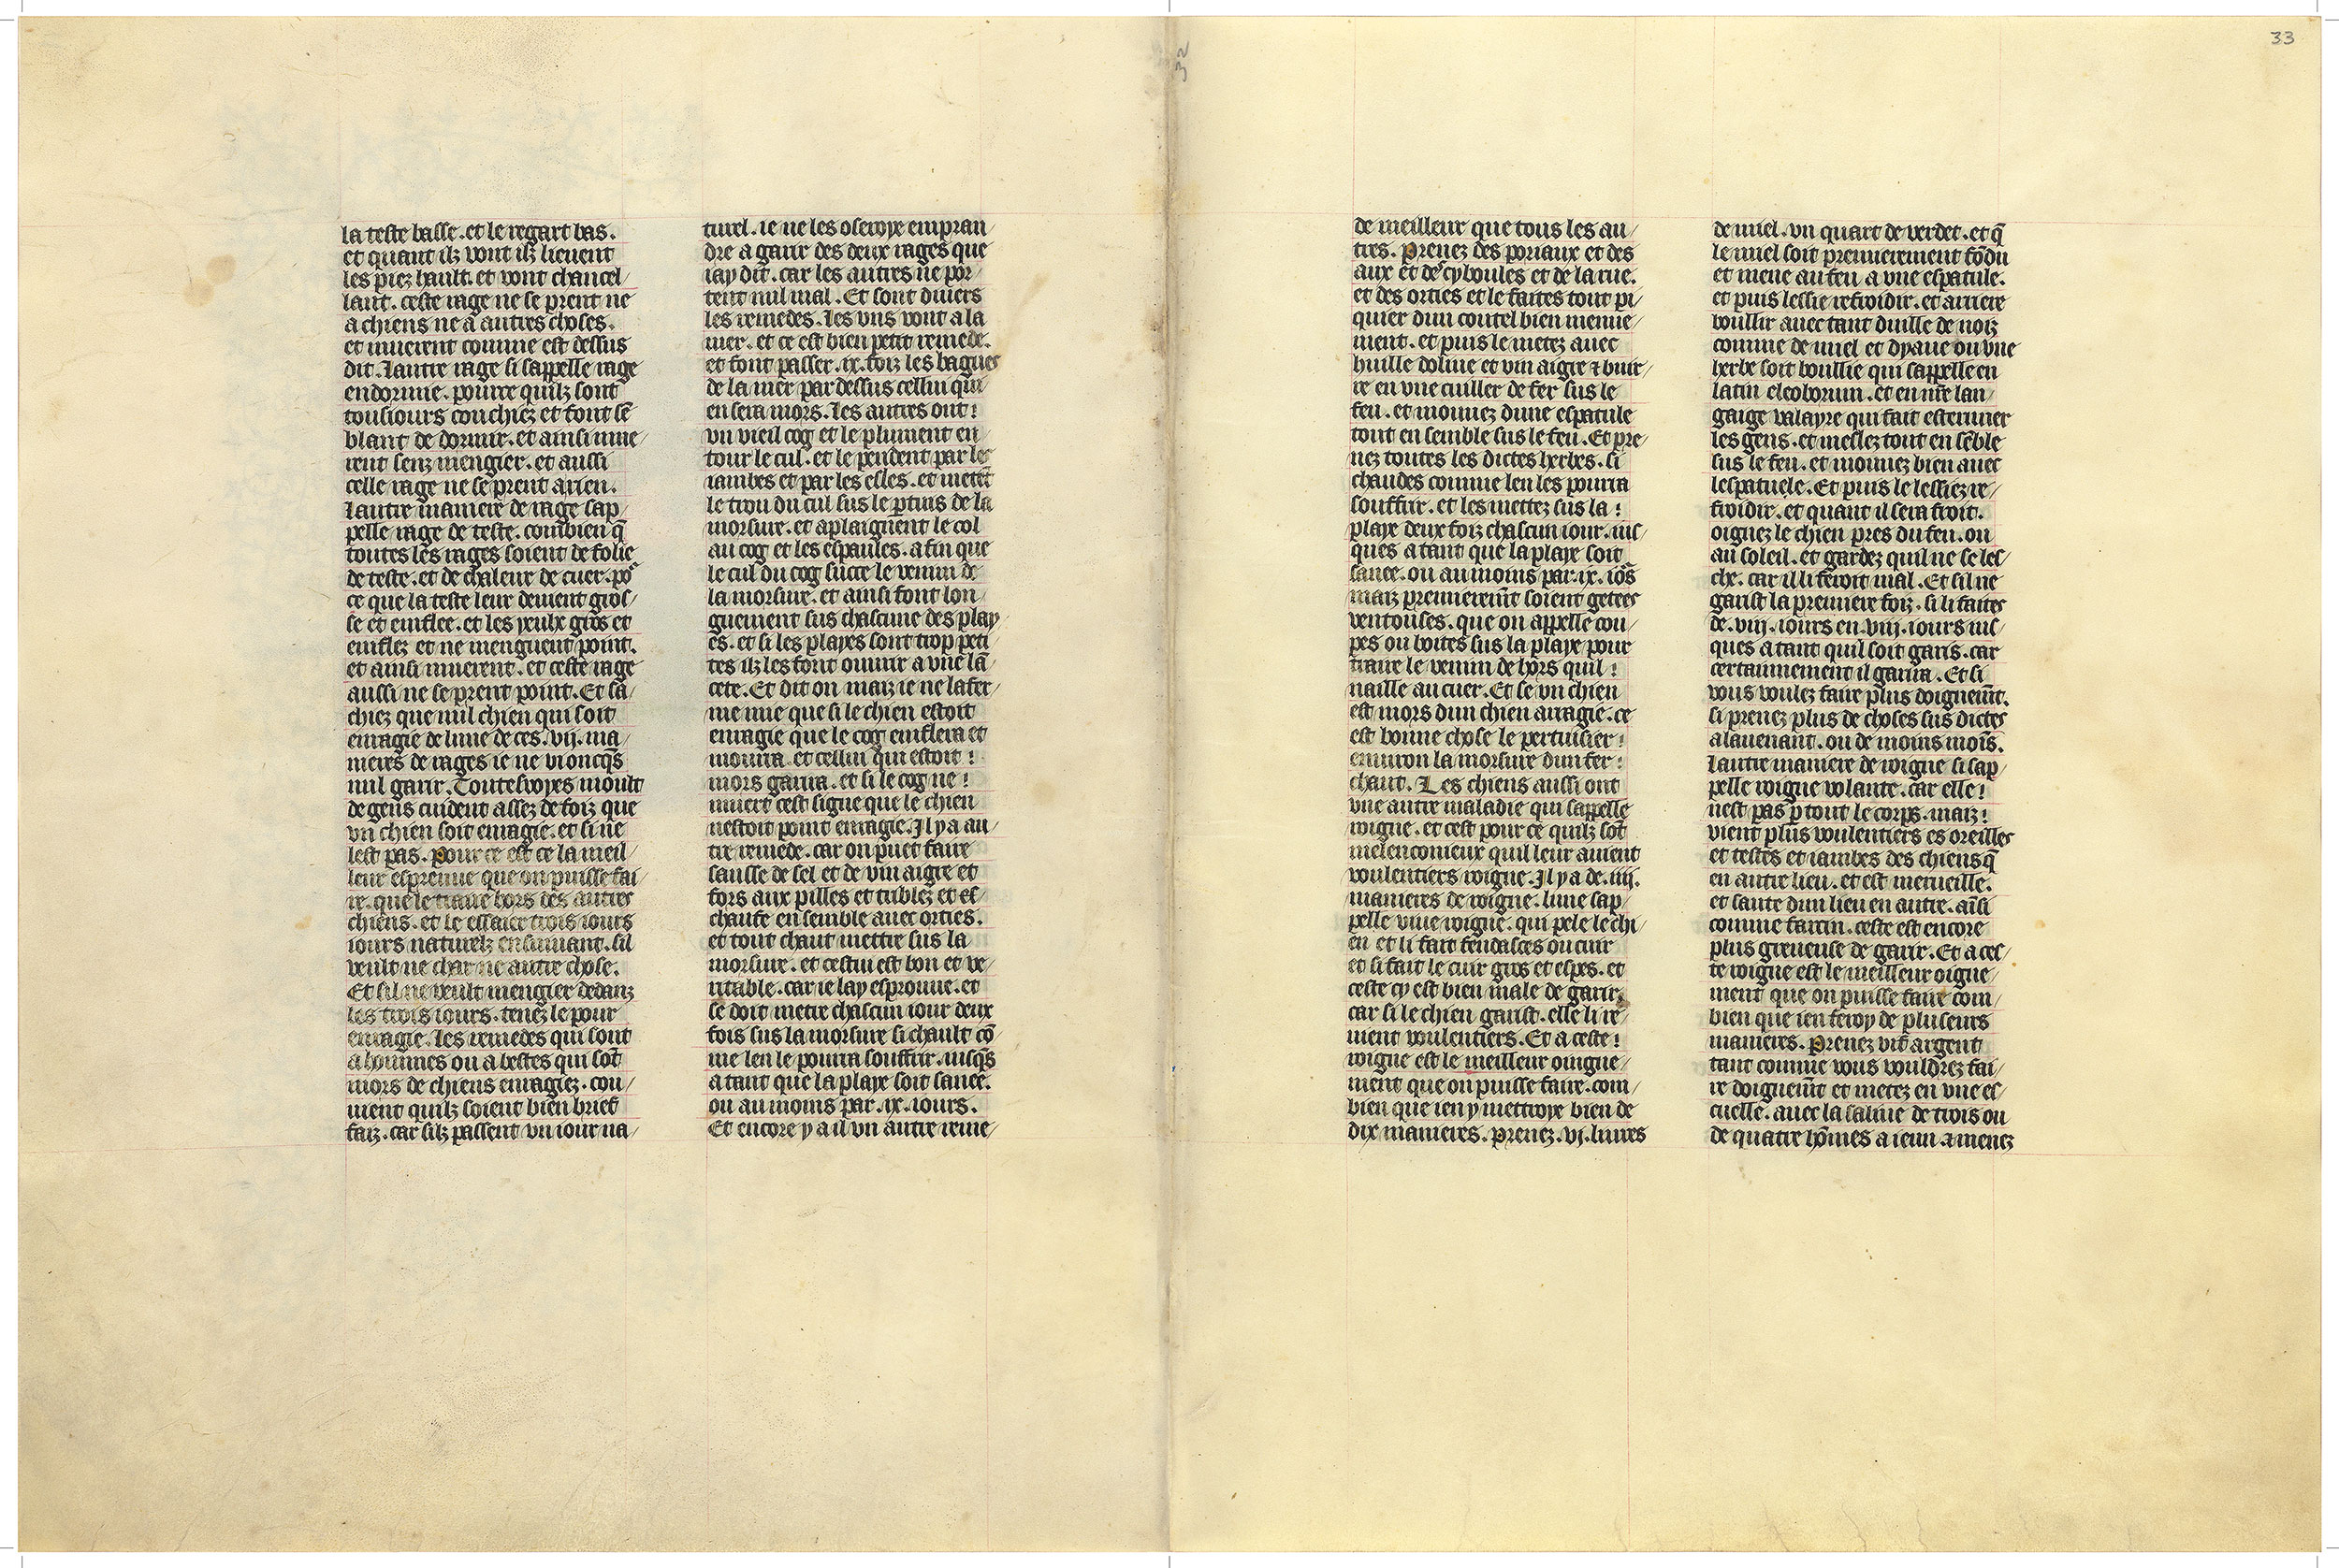 33
32
la teste basse. et le regart bas.
et quant ilz vont ilz lieuent
les piez hault. et vont chancel/
lant. ceste rage ne se prent ne
a chiens ne a autres choses.
et muerent comme est dessus
dit. Lautre rage si sappelle rage
endormie. pource quilz sont
tousiours couchiez et font sē
blant de dormir. et ainsi mue/
rent senz mengier. et aussi
celle rage ne se prent a rien.
Lautre maniere de rage sap/
pelle rage de teste. combien q̄
toutes les rages soient de folie
de teste. et de chaleur de cuer. po᷑
ce que la teste leur deuient gros/
se et enflee. et les yeulx gros et
enflez et ne menguent point.
et ainsi muerent. et ceste rage
aussi ne se prent point. Et sa/
chiez que nul chien qui soit
enragie de lune de ces .vij. ma/
nieres de rages ie ne vi oncq̄s
nul garir. Toutesvoyes moult
de gens cuident assez de foiz que
vn chien soit enragie. et si ne
lest pas. Pour ce est ce la meil/
leur espreuue que on puisse fai/
re. que le traire hors des autres
chiens. et le essaier trois iours
iours naturelz ensuiuant. sil
veult ne char ne autre chose.
Et sil ne veult mengier dedanz
les trois iours. tenez le pour
enragie. Les remedes qui sont
a hommes ou a bestes qui sōt
mors de chiens enragiez. con/
uient quilz soient bien brief
faiz. car silz passent vn iour na/
turel. ie ne les oseroye empran/
dre a garir des deux rages que
iay dit. car les autres ne por/
tent nul mal. Et sont diuers
les remedes. Les vns vont a la
mer. et ce est bien petit remede.
et font passer .ix. foiz les bagues
de la mer par dessus cellui qui
en sera mors. Les autres ont!
vn vieil coq et le plument en/
tour le cul. et le pendent par les
iambes et par les esles. et metēt
le trou du cul sus le ptuis de la
morsure. et aplaignent le col
au coq et les espaules. a fin que
le cul du coq succe le venin de
la morsure. et ainsi font lon/
guement sus chascune des play/
es. et si les playes sont trop peti/
tes ilz les font ouurir a vne lā
cete. Et dit on maiz ie ne lafer/
me mie que si le chien estoit
enragie que le coq enflera et
mourra. et cellui qui estoit!
mors garira. et si le coq ne!
muert cest signe que le chien
nestoit point enragie. Il y a au/
tre remede. car on puet faire
sausse de sel et de vin aigre et
fors aux pillez et tiblez et es/
chaufe en semble auec orties.
et tout chaut mettre sus la
morsure. et cestui est bon et ve/
ritable. car ie lay esprouue. et
se doit metre chascun iour deux
fois sus la morsure si chault cō
me len le pourra souffrir. iusq̄s
a tant que la playe soit sanee.
ou au moins par .ix. iours.
Et encore y a il vn autre reme/
de meilleur que tous les au/
tres. Prenez des poriaux et des
aux et des cyboules et de la rue.
et des orties et le faites tout pi/
quier dun coutel bien menue/
ment. et puis le metez auec
huille doliue et vin aigre ⁊ buir/
re en vne cuiller de fer sus le
feu. et mouuez dune espatule
tout en semble sus le feu. Et pre/
nez toutes les dictes herbes. si
chaudes comme len les pourra
souffrir. et les mettez sus la!
playe deux foiz chascun iour. ius/
ques a tant que la playe soit
sanee. ou au moins par .ix. iōs
maiz premieremēt soient getees
ventouses. que on appelle cou/
pes ou boites sus la playe pour
traire le venin de hors quil!
naille au cuer. Et se vn chien
est mors dun chien arragie. ce
est bonne chose le pertuisier!
enuiron la morsure dun fer!
chaut. Les chiens aussi ont
vne autre maladie qui sappelle
roigne. et cest pour ce quilz sōt
melencomeux quil leur auient
voulentiers roigne. Il y a de .iiij.
manieres de roigne. lune sap/
pelle viue roigne. qui pele le chi/
en et li fait fendasces ou cuir
et si fait le cuir gros et espes. et
ceste cy est bien male de garir.
car si le chien garist. elle li re/
uient voulentiers. Et a ceste!
roigne est le meilleur oingne/
ment que on puisse faire. com/
bien que ien y mettroye bien de
dix manieres. Prenez .vj. liures
de miel. vn quart de verdet. et q̄
le miel soit premierement fōdu
et meue au feu a vne espatule.
et puis lessie refroidir. et arriere
boullir auec tant duille de noiz
comme de miel et dyaue ou vne
herbe soit boullie qui sappelle en
latin eleoborum. et en nr̄e lan/
gaige valayre qui fait esternuer
les gens. et meslez tout en sēble
sus le feu. et mouuez bien auec
lespatuele. Et puis le lessiez re/
froidir. et quant il sera froit.
oignez le chien pres du feu. ou
au soleil. et gardez quil ne se les/
che. car il li feroit mal. Et sil ne
garist la premiere foiz. si li faites
de .viij. iours en .viij. iours ius/
ques a tant quil soit garis. car
certainnement il garira. Et si
vous voulez faire plus doignemēt.
si prenez plus de choses sus dictes
alauenant. ou de moins moīs.
Lautre maniere de roigne si sap/
pelle roigne volante. car elle!
nest pas p tout le corps. maiz!
vient plus voulentiers es oreilles
et testes et iambes des chiens q̄
en autre lieu. et est merueille.
et saute dun lieu en autre. aīsi
comme farcin. ceste est encore
plus greueuse de garir. Et a ces/
te roigne est le meilleur oigne/
ment que on puisse faire com/
bien que ien feroy de pluseurs
manieres. Prenez vif argent
tant comme vous vouldrez fai/
re doignemēt et metez en vne es/
cuelle. auec la saliue de trois ou
de quatre hōmes a ieun. ⁊ menez